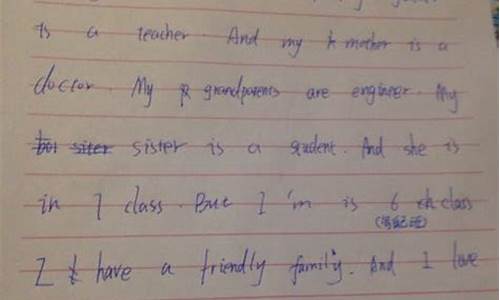 is a teacher. And my mother is a
doctor. My grandparents are engineer. My
sister is a student. And she is
in 7 class. But I'm is 6 class
I have a friendly family. And I love